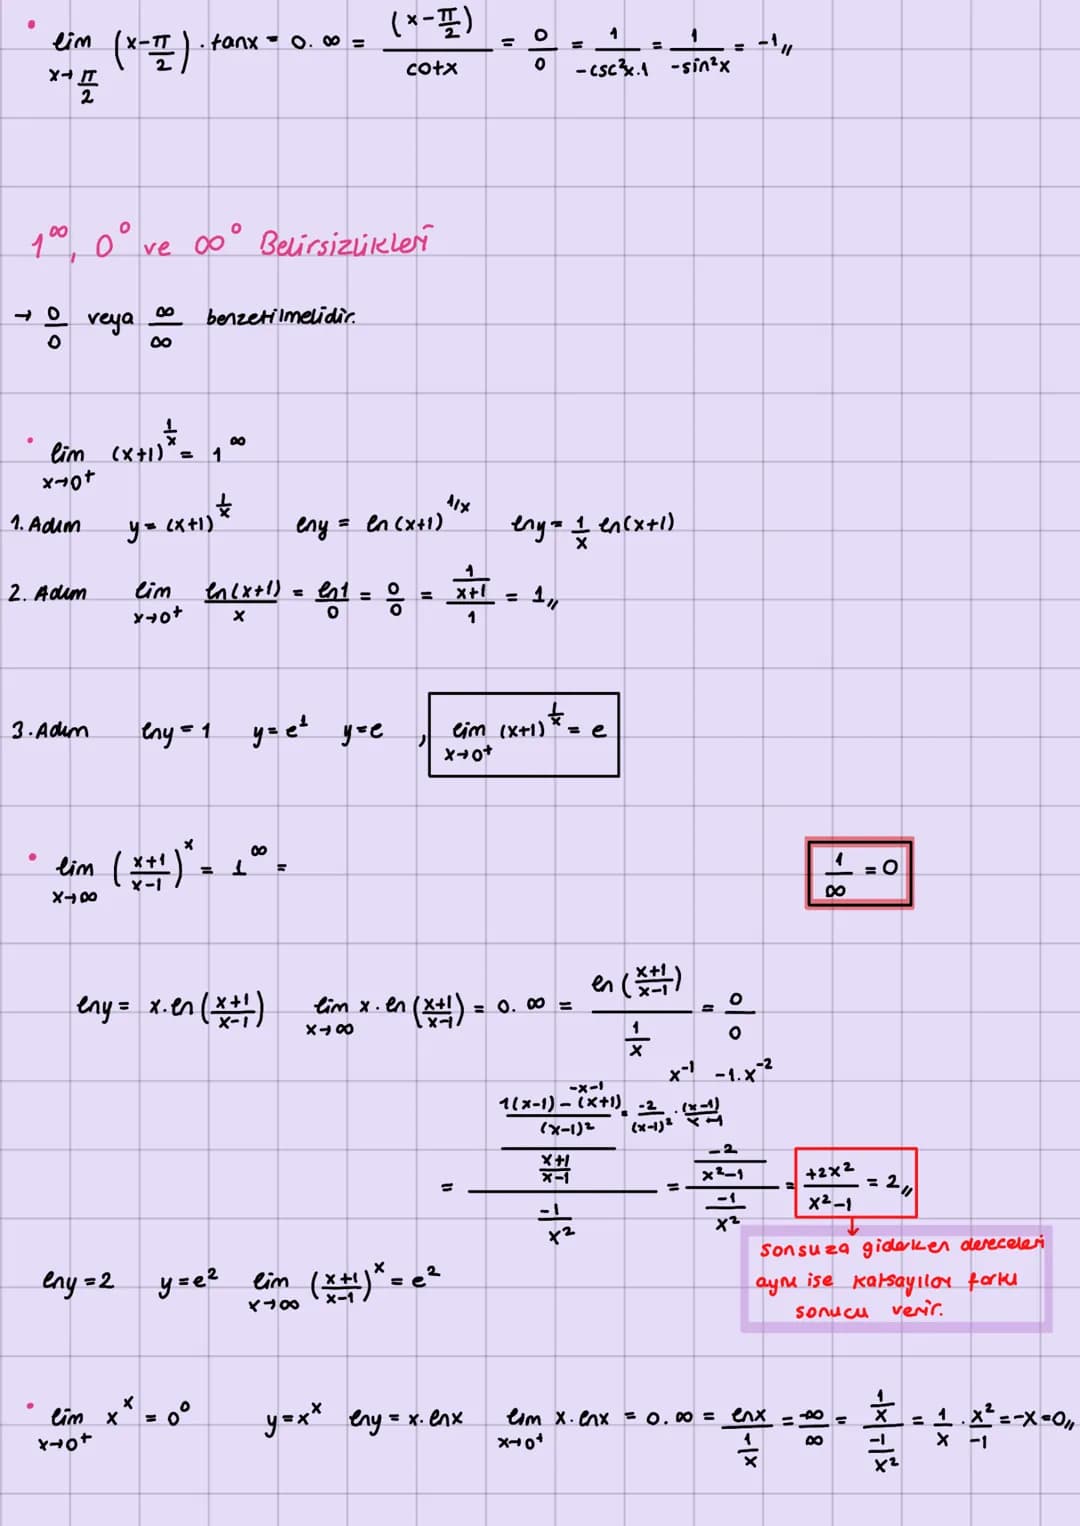 • lim x→π/2 (x-π/2) . tanx = 0.∞ = (x-π/2)/cotx = 0/0 = 1/-csc²x.1 = 1/-sin²x = -1,,
1^∞, 0^0 ve ∞^0 Belirsizlikleri
→ 0/0 veya ∞/∞ benzetilmelidir.
• lim x→0⁺ (x+1)^(1/x) = 1^∞
1. Adım y = (x+1)^(1/x) lny = ln(x+1)^(1/x) lny = 1/x ln(x+1)
2. Adım lim x→0⁺ ln(x+1)/x = ln1/0 = 0/0 = (1/(x+1))/1 = 1,,
3. Adım lny = 1 y = e¹ y = e , lim x→0⁺ (x+1)^(1/x) = e
• lim x→∞ ((x+1)/(x-1))^x = 1^∞ =
1/∞ = 0
lny = x.ln((x+1)/(x-1)) lim x→∞ x.ln((x+1)/(x-1)) = 0.∞ = ln((x+1)/(x-1))/(1/x) = 0/0
x⁻¹ -1.x⁻²
-x-1
= ((1(x-1)-(x+1))/(x-1)²)/((x+1)/(x-1))/(-1/x²) = (-2/(x²-1))/(-1/x²) = +2x²/(x²-1) = 2,,
-2/(x-1)² . (x-1)/(x+1)
Sonsuza giderken dereceleri
aynı ise katsayılar farkı
sonucu verir.
lny = 2 y = e² lim x→∞ ((x+1)/(x-1))^x = e²
• lim x→0⁺ x^x = 0^0 y = x^x lny = x.lnx lim x→0⁺ x.lnx = 0.∞ = lnx/(1/x) = -∞/∞ = (1/x)/(-1/x²) = 1/x . x²/-1 = -x = 0,,